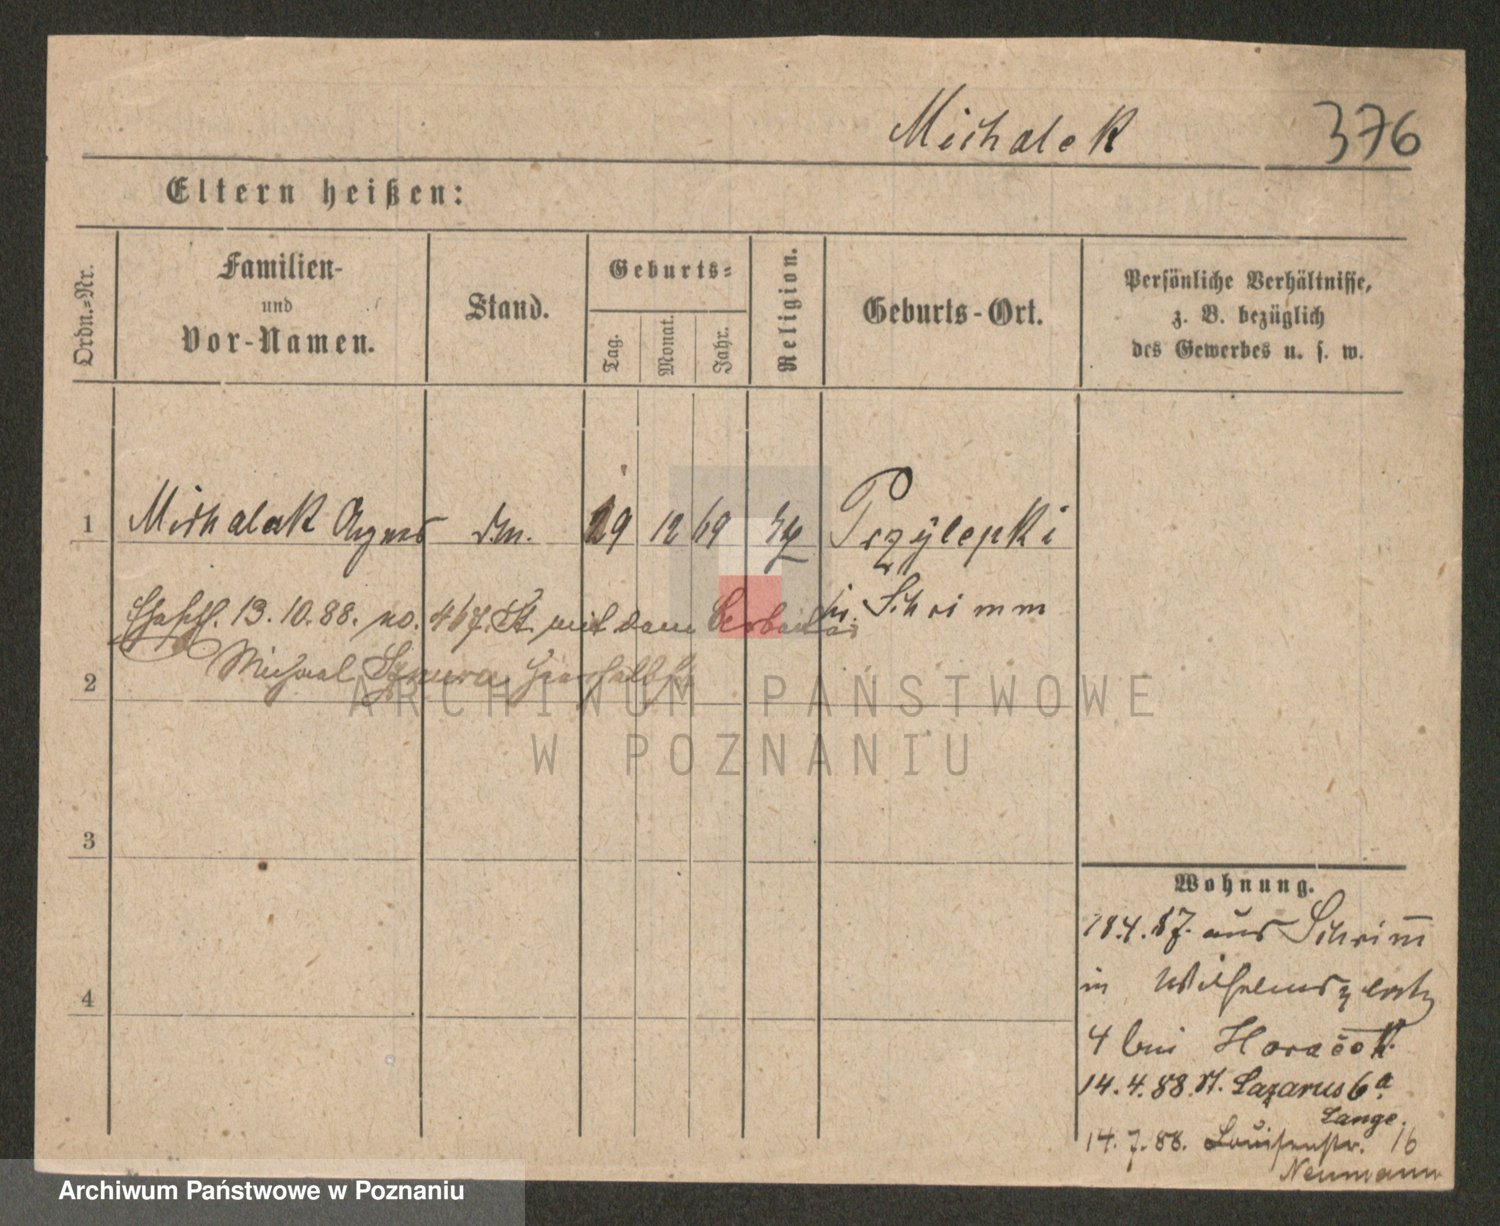 Michalek 376
Eltern heißen:
Ordn.-Nr.
Familien-
und
Vor-Namen.
Stand.
Geburts-
Tag.
Monat.
Jahr.
Religion.
Geburts-Ort.
Persönliche Verhältnisse,
z. B. bezüglich
des Gewerbes u. s. w.
1 Michalak Agnes 29 12 69 Przylepki
13.10.88. no. 467 mit dem Arbeiter
Schrimm
2 Michael hierselbst
ARCHIWUM PAŃSTWOWE
W POZNANIU
3
4
Wohnung.
18.4.87. aus Schrimm
in Wilhelmsplatz
4 bei Horacek
14.4.88. St. Lazarus 6a
Lange.
14.7.88. Louisenstr. 16
Neumann
Archiwum Państwowe w Poznaniu